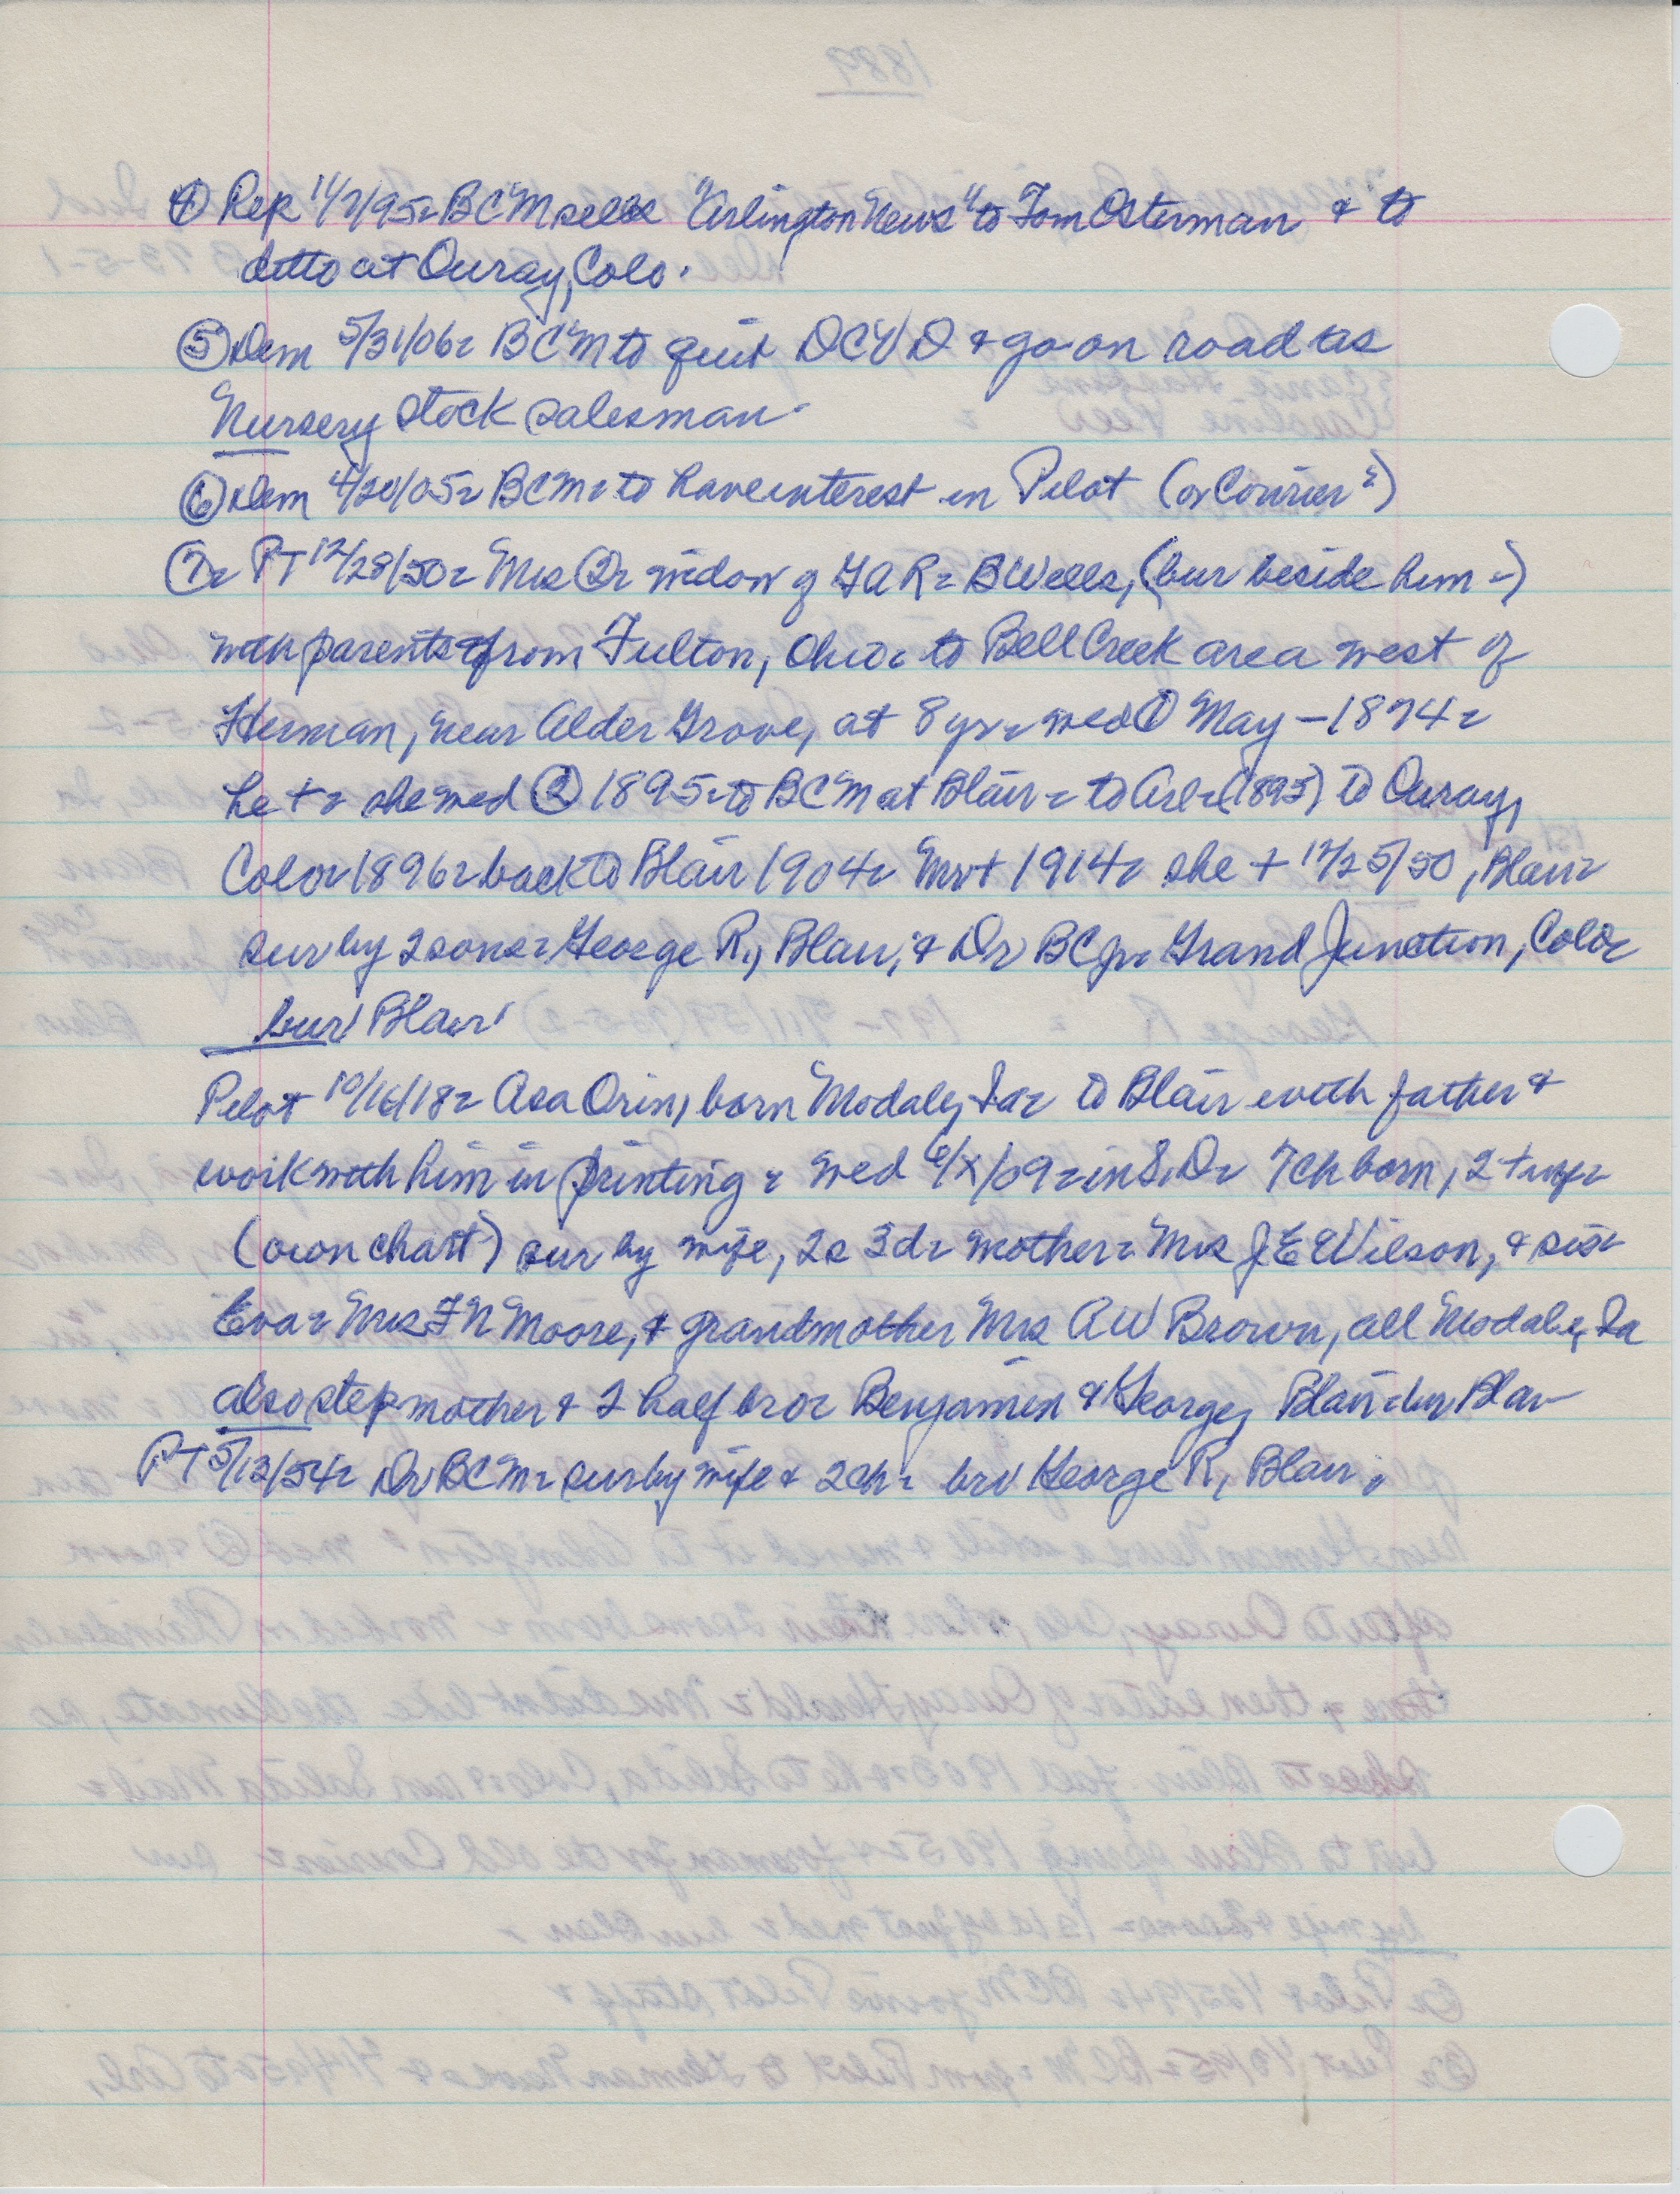 ④ Rep 11/7/95 = BCM sells "Arlington News" to Tom Osterman & to
ditto at Ouray, Colo.
⑤ Dem 5/31/06 = BCM to quit DCVD & go on road as
Nursery stock salesman.
⑥ Dem 4/20/05 = BCM = to have interest in Pilot (or Courier?)
⑦ = PT 12/28/50 = Mrs ② = widow of GAR = B Wells, (bur beside him -)
with parents from Fulton, Ohio = to Bell Creek area west of
Herman, near Alder Grove, at 8 yr = wed ① May - 1874 =
he + = she wed ② 1895 = to BCM at Blair = to Arl = (1895) to Ouray,
Colo = 1896 = back to Blair 1904 = Mr + 1914 = she + 12/25/50, Blair =
sur by 2 sons = George R., Blair, & Dr BC jr = Grand Junction, Colo =
bur Blair
Pilot 10/16/18 = Asa Orin, born Modale, Ia = to Blair with father &
work with him in printing = wed 6/X/09 = in S.D = 7 ch born, 2 + inf =
(own chart) sur by wife, 2s 3d = mother = Mrs J E Wilson, & sis =
Eva = Mrs F N Moore, & grandmother Mrs A W Brown, all Modale, Ia
also step mother & 2 half bro = Benjamin & George, Blair = bur Blair
PT 5/13/54 = Dr BCM = sur by wife & 2 ch = bro George R, Blair.